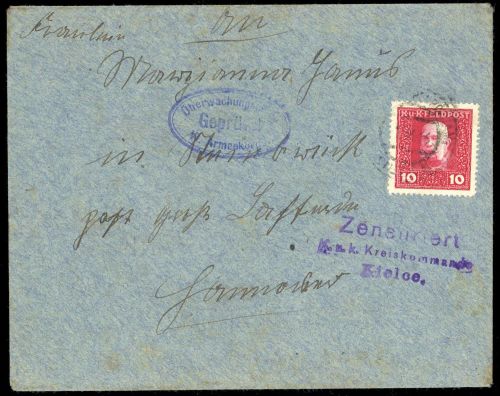 Fräulein
An
Marijianna Janus
Überwachungs
Geprüft
Armeekorps
in
post groß Lafferde
Hannover
K.u.K. FELDPOST
10 10
Zensuriert
K.u.k. Kreiskommando
Kielce.